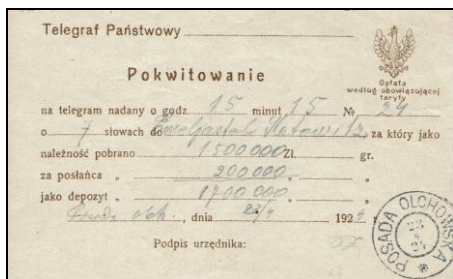 Telegraf Państwowy
Opłata
według obowiązującej
taryfy
Pokwitowanie
na telegram nadany o godz. 15 minut 15 № 24
o 7 słowach do za który jako
należność pobrano 1500000 zł. gr.
za posłańca „ 200000 „ „
jako depozyt „ 1700000 „ „
olch., dnia 23/4 1924 r.
Podpis urzędnika:
POSADA OLCHOWSKA